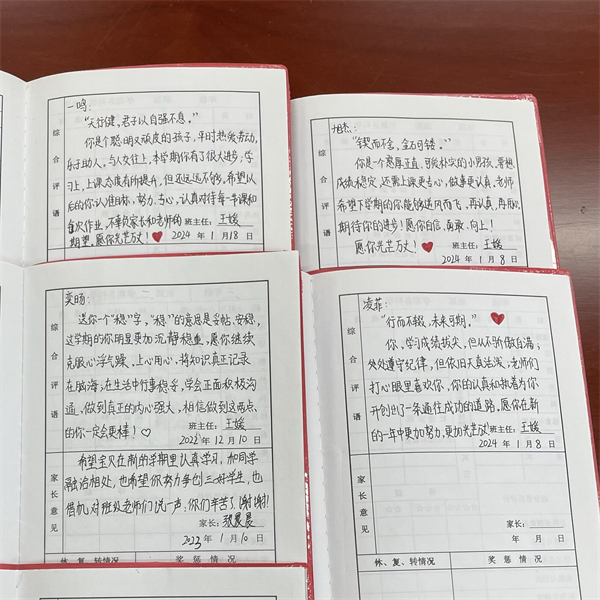 综合评语
一鸣：
“天行健，君子以自强不息。”
你是个聪明又顽皮的孩子，平时热爱劳动，
乐于助人。与人交往上，本学期你有了很大进步；学
习上，上课态度有所提升，但还远远不够，希望以
后的你认准目标，努力、专心，认真对待每一节课和
每次作业，不辜负家长和老师的
期望。愿你光芒万丈！
班主任：王媛
2024 年 1 月 18 日
综合评语
旭杰：
“锲而不舍，金石可镂。”
你是个憨厚正直、可爱朴实的小男孩，要想
成绩稳定，还需上课更专心，做事更认真，老师
希望下学期的你能够逆风而飞，再认真，再用心，
期待你的进步！愿你自信、勇敢、向上！
愿你光芒万丈！
班主任：王媛
2024 年 1 月 8 日
综合评语
奕旸：
送你一个“稳”字，“稳”的意思是妥帖，安稳，
这学期的你明显更加沉静稳重，愿你继续
克服心浮气躁，上心用心，将知识真正记录
在脑海；在生活中行事稳妥，学会正面积极沟
通，做到真正的内心强大，相信做到这两点，
的你一定会更棒！
班主任：王媛
2022 年 12 月 10 日
家长意见
希望宝贝在新的学期里认真学习，和同学
融洽相处，也希望你努力争创三好学生，也
借机对班级老师们说一声：你们辛苦了，谢谢！
家长：张晨晨
2023 年 1 月 10 日
休、复、转情况
奖惩情况
综合评语
凌菲：
“行而不辍，未来可期。”
你，学习成绩拔尖，但从不骄傲自满；
处处遵守纪律，但依旧天真活泼；老师们
打心眼里喜欢你，你的认真和执着为你
开创出了一条通往成功的道路。愿你在新
的一年中更加努力，更加光芒万丈！
班主任：王媛
2024 年 1 月 8 日
家长意见
家长：
年 月 日
休、复、转情况
奖惩情况